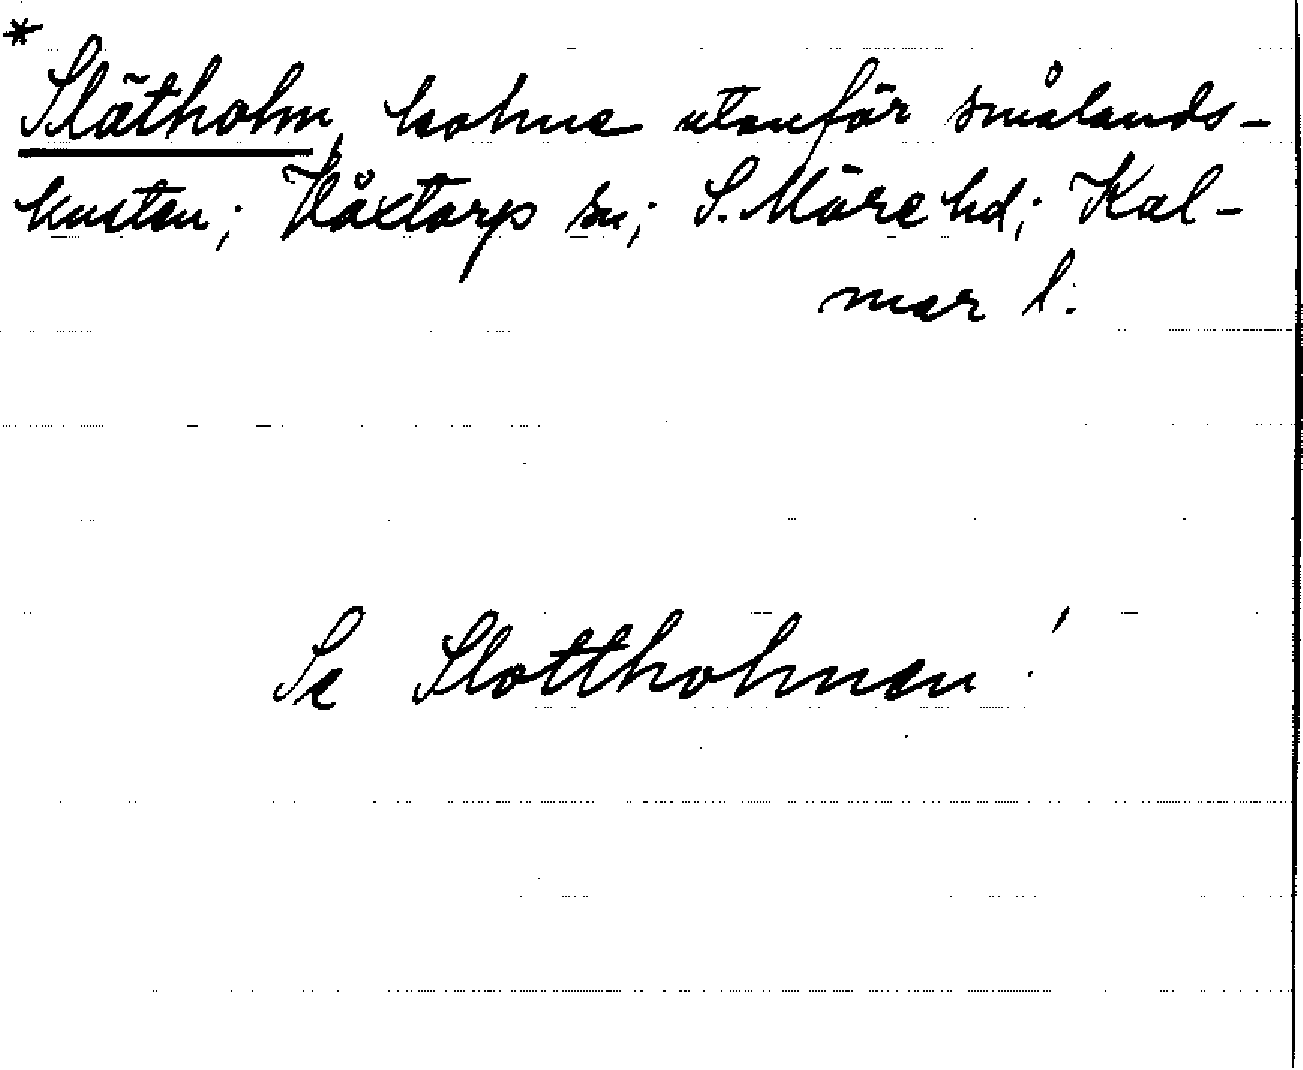 * Slätholm, holme utanför smålands-
kusten; Våxtorp sn; S. Möre hd; Kal-
mar l.
Se Slottholmen!